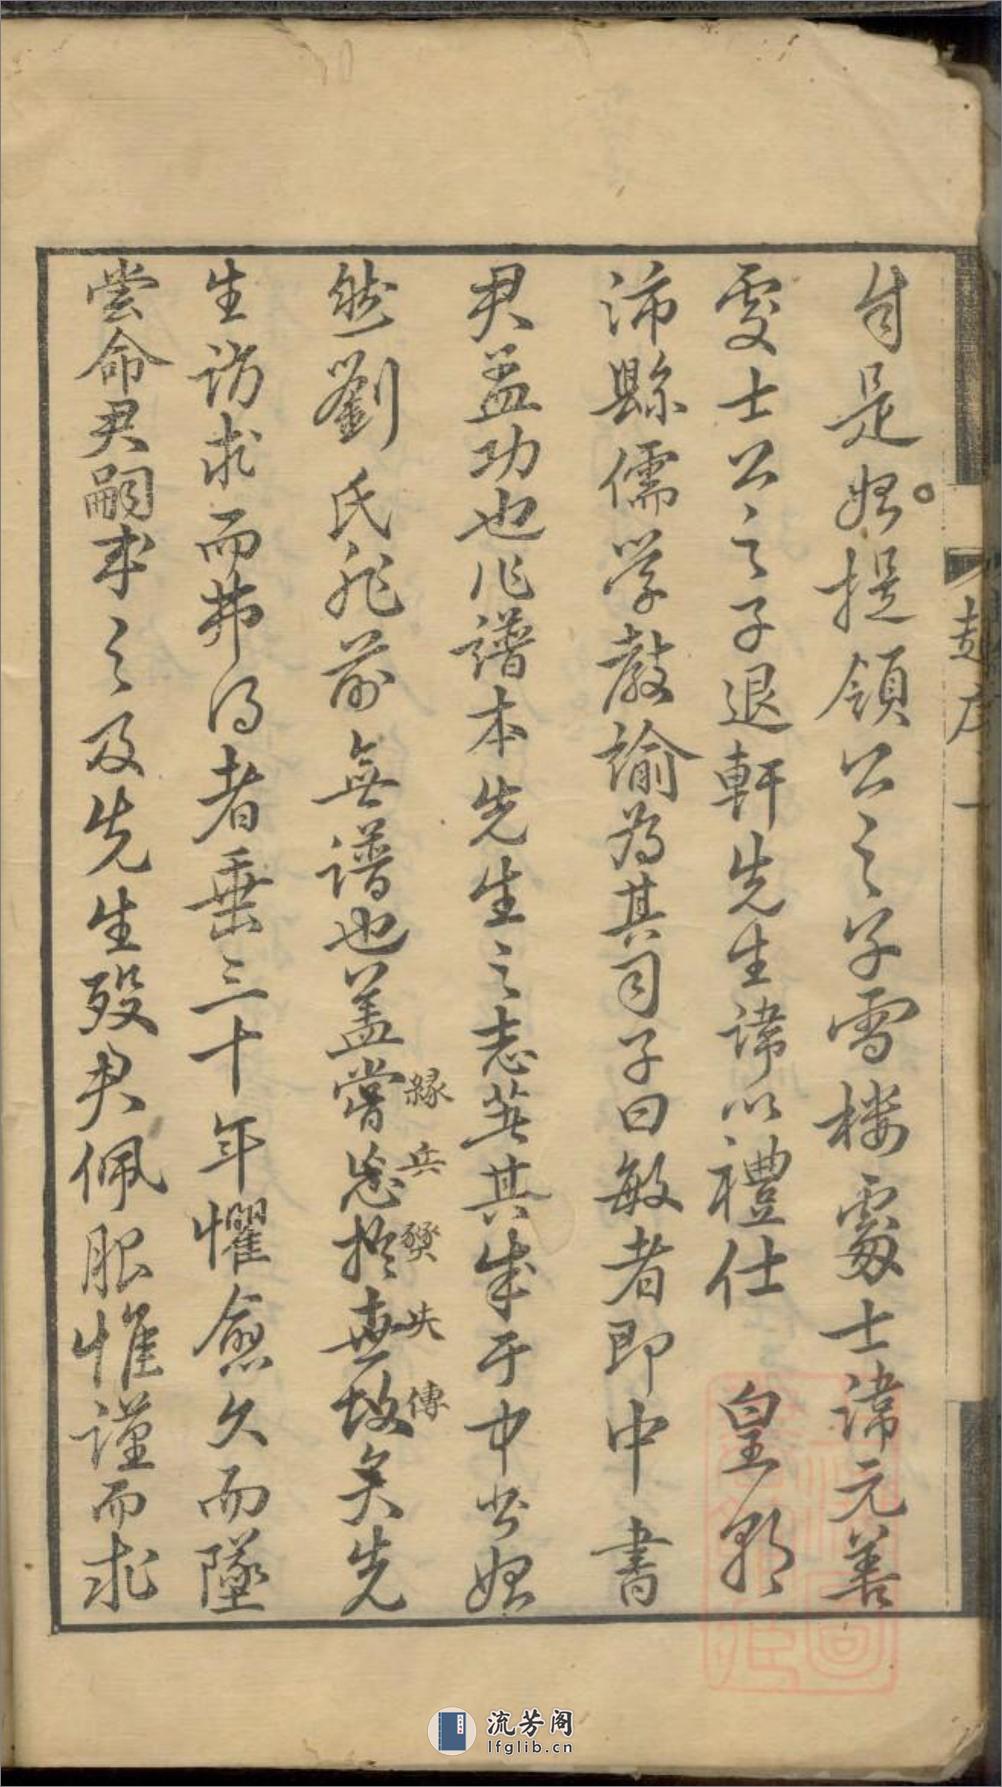 自是始提領公之子雪樓處士諱元善
處士公之子退軒先生諱以禮仕　皇朝
沛縣儒學教諭為其司子曰敏者即中書
君益功也作譜本先生之志並其成于中書始
然劉氏非前無譜也蓋嘗忠於世故矣先
緣兵燹失傳
生訪求而弗得者垂三十年懼愈久而墜
嘗命君嗣求之及先生歿君佩服惟謹而求
趙序
一
流芳阁
lfglib.cn